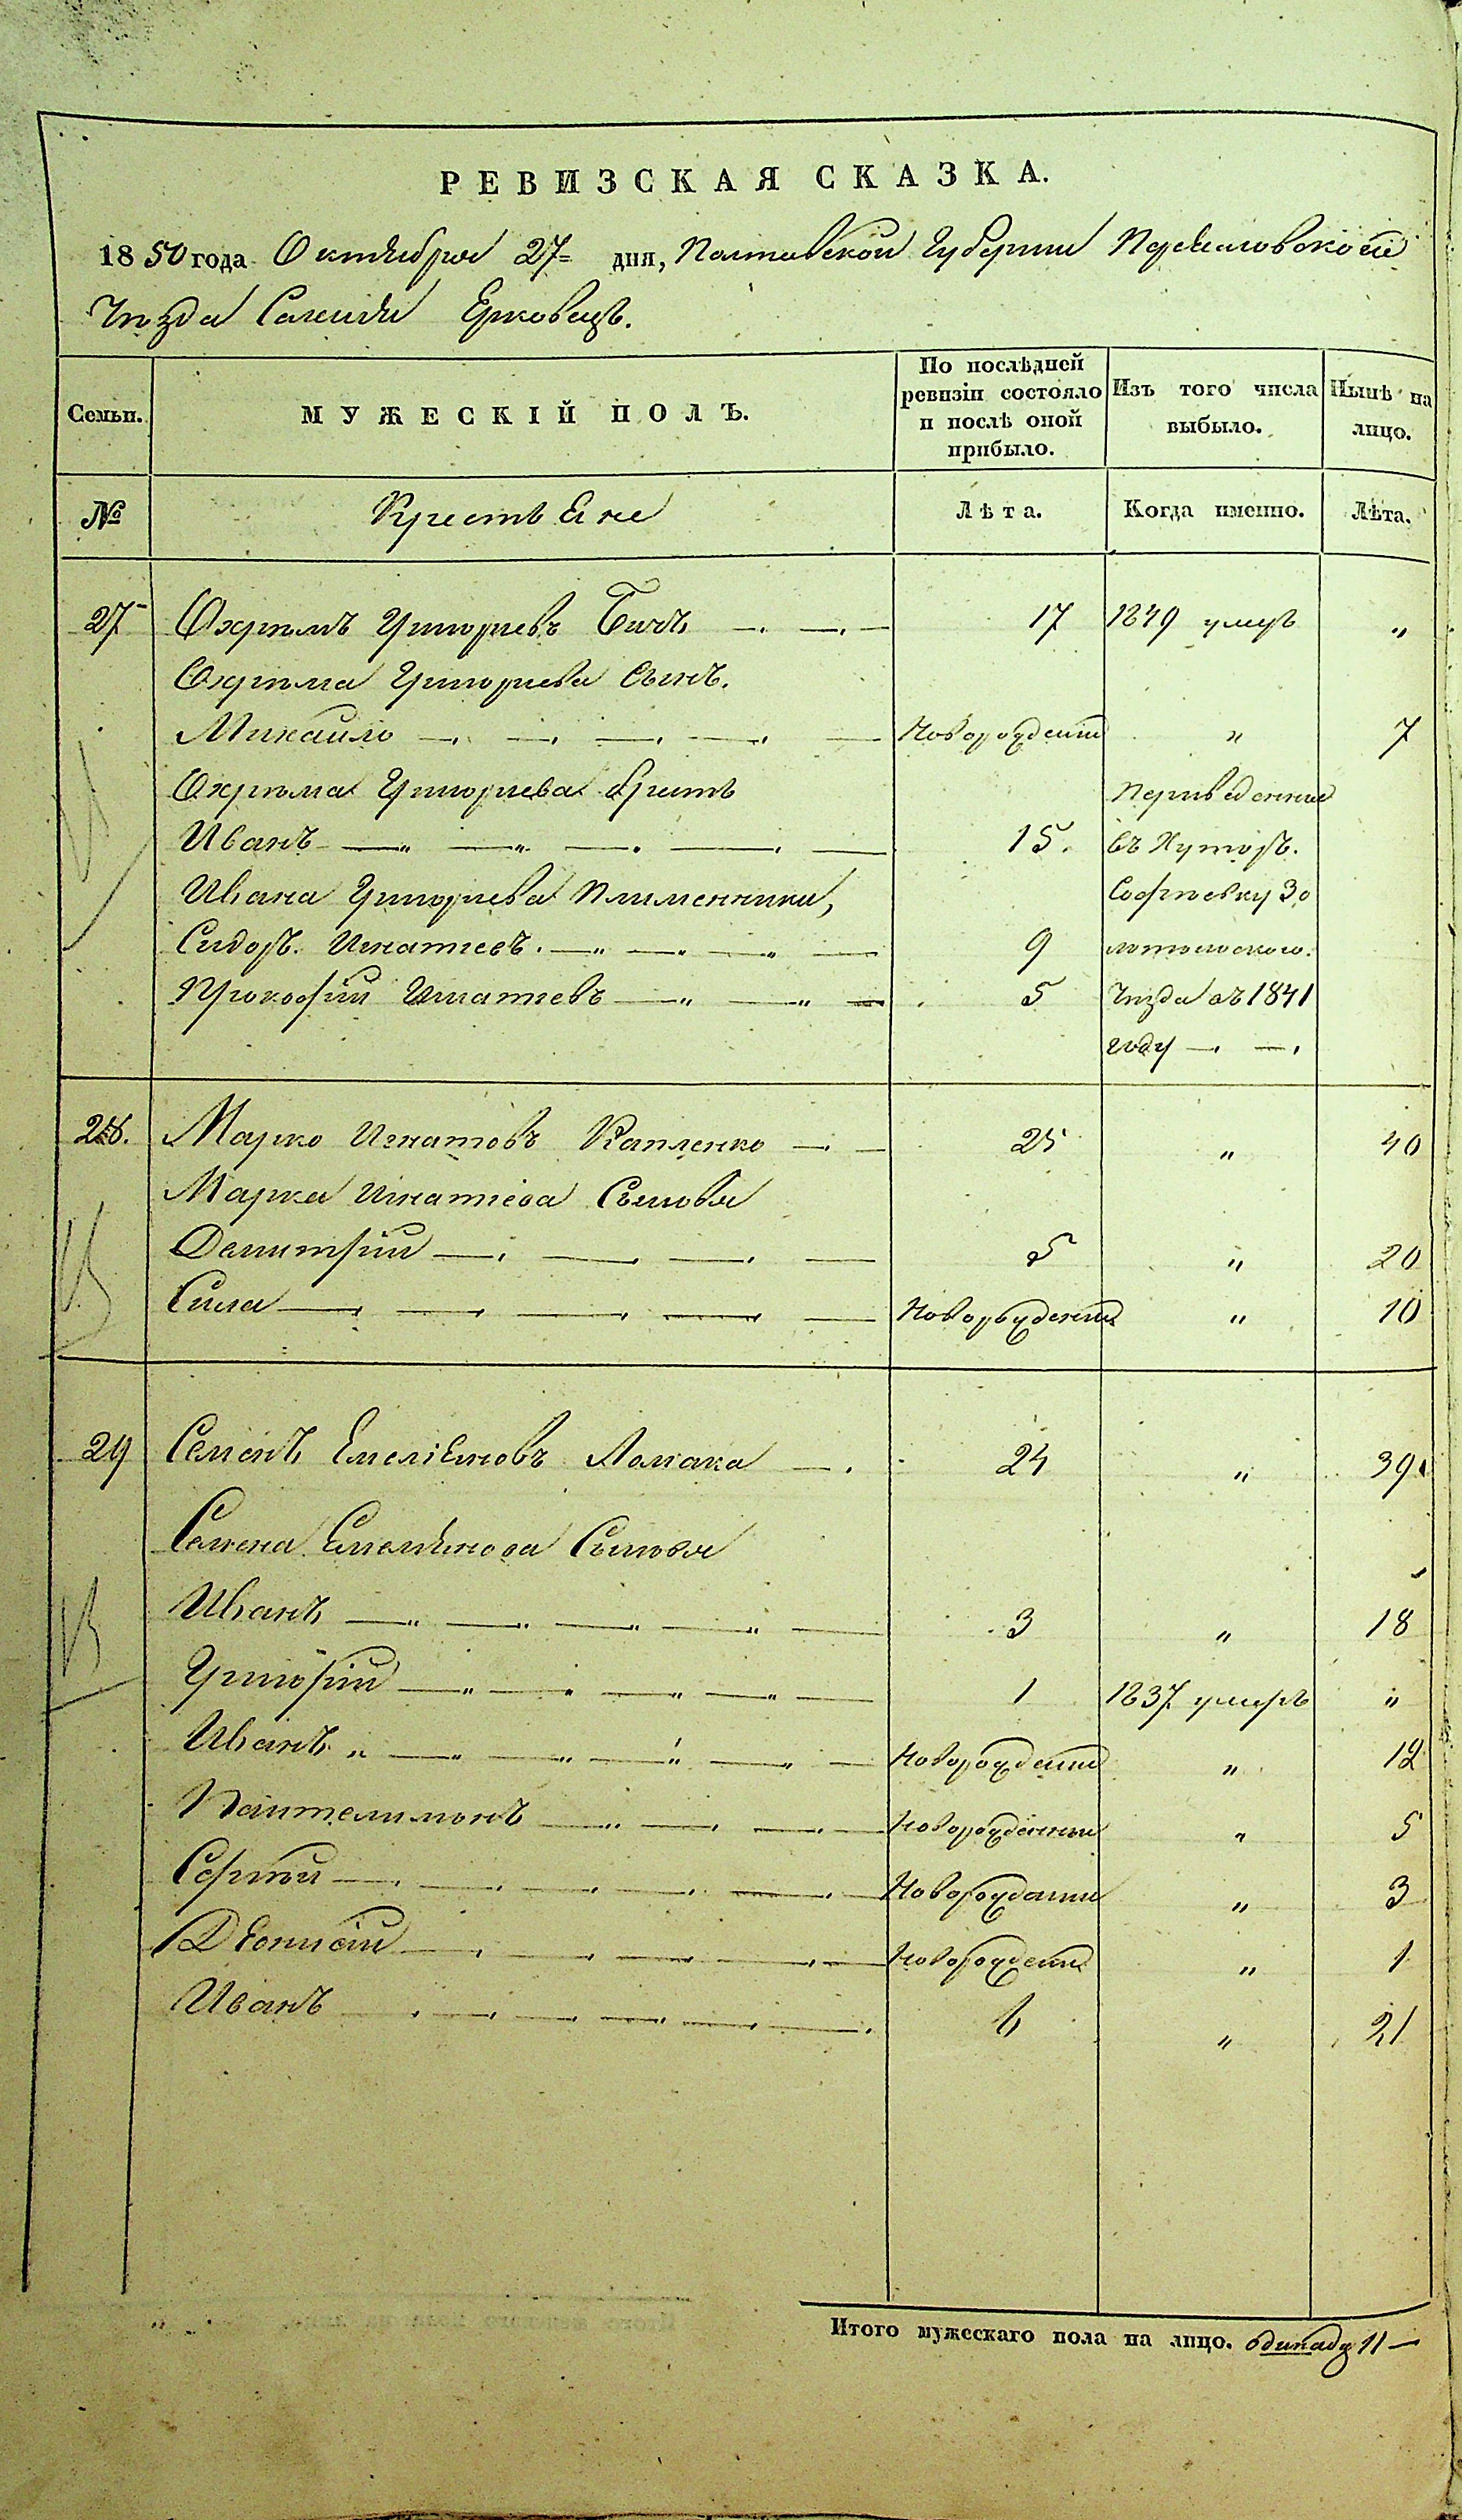 РЕВИЗСКАЯ СКАЗКА.
1850 года Октября 27 дня, Полтавской Губернии Переяловского
Уезда Селения Ерковецъ.
Семьи. МУЖЕСКІЙ ПОЛЪ. По послѣдней ревизіи состояло и послѣ оной прибыло. Изъ того числа выбыло. Нынѣ на лицо.
№ Крестьяне Лѣта. Когда именно. Лѣта.
27 Охримъ Григориевъ Бичъ 17 1849 умеръ „
Охрима Григориева Сынъ.
Михайло Новорожденный „ 7
Охрима Григориева братъ Переведенные
Иванъ 15. въ Хуторъ.
Ивана Григориева племенники, Софиевку Зо
Сидоръ Игнатиевъ. 9 лотоноского.
Прокофий Игнатиевъ 5 Уезда въ 1841
году
28. Марко Игнатовъ Капленко 25 „ 40
Марка Игнатиева Сыновья
Демитрий 5 „ 20
Сила Новорожденный „ 10
29 Семенъ Емельяновъ Ломака 24 „ 39
Семена Емельянова Сыновья
Иванъ 3 „ 18
Григорий 1 1837 умеръ „
Иванъ Новорожденный „ 12
Пантелимонъ Новорожденный „ 5
Сергий Новорожденный „ 3
Деонисий Новорожденный „ 1
Иванъ 6 „ 21
Итого мужескаго пола на лицо. одинадц 11